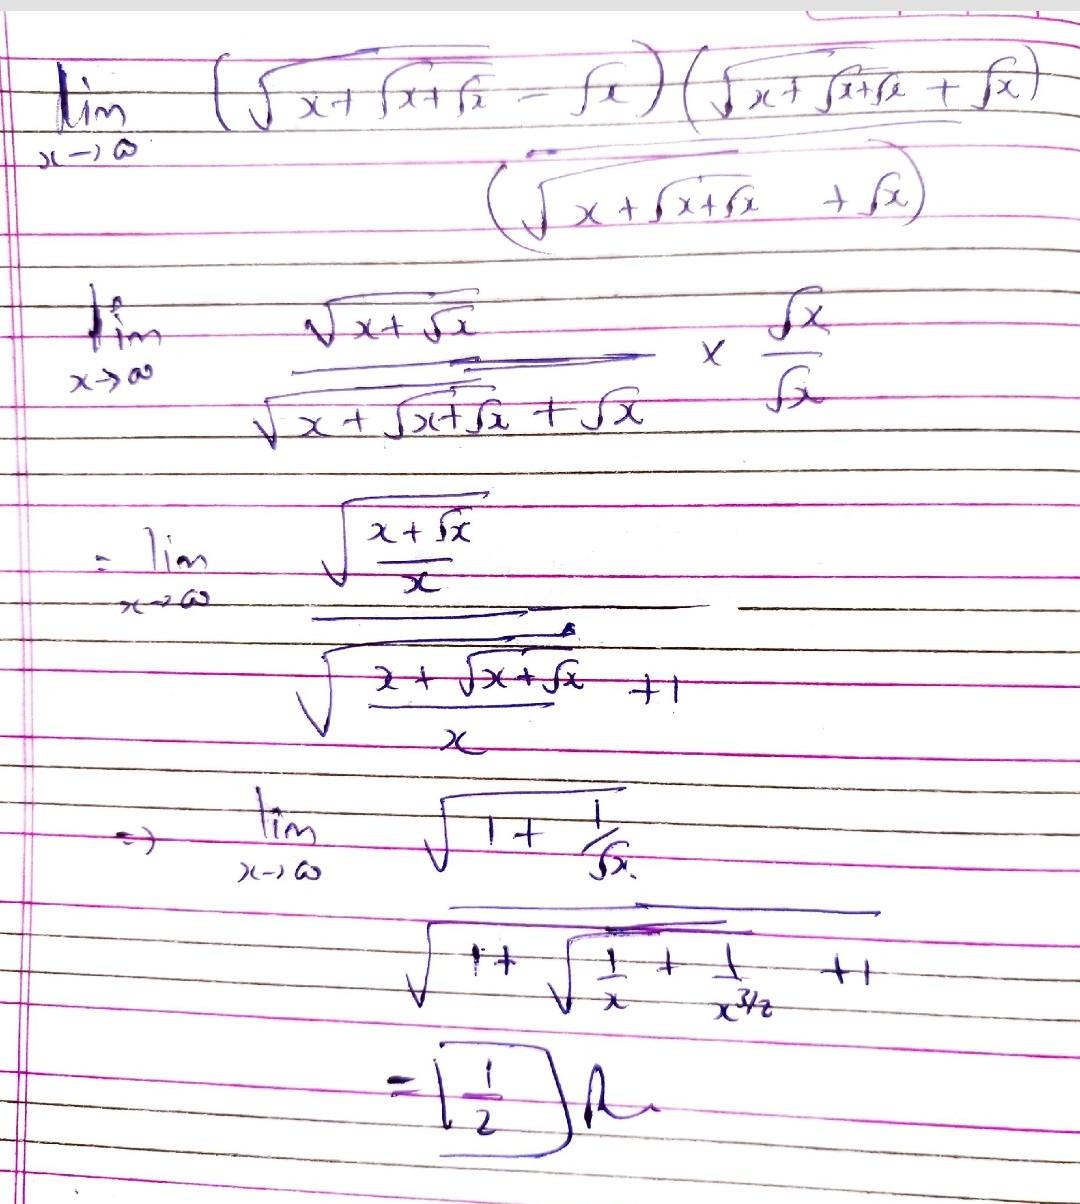 lim (√(x+√(x+√x)) − √x) (√(x+√(x+√x)) + √x)
x→∞
(√(x+√(x+√x)) + √x)
lim √(x+√x) × √x
x→∞ √(x+√(x+√x)) + √x √x
= lim √((x+√x)/x)
x→∞
√((x+√(x+√x))/x) +1
=> lim √(1+1/√x)
x→∞
√(1+√(1/x + 1/x^(3/2))) +1
= 1/2